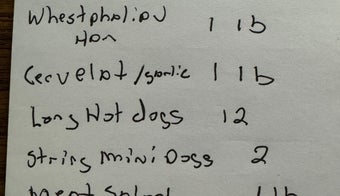 Whestphaliou 1 1b
Han
Cervelat/garlic 1 1b
Long Hot dogs 12
String mini Dogs 2